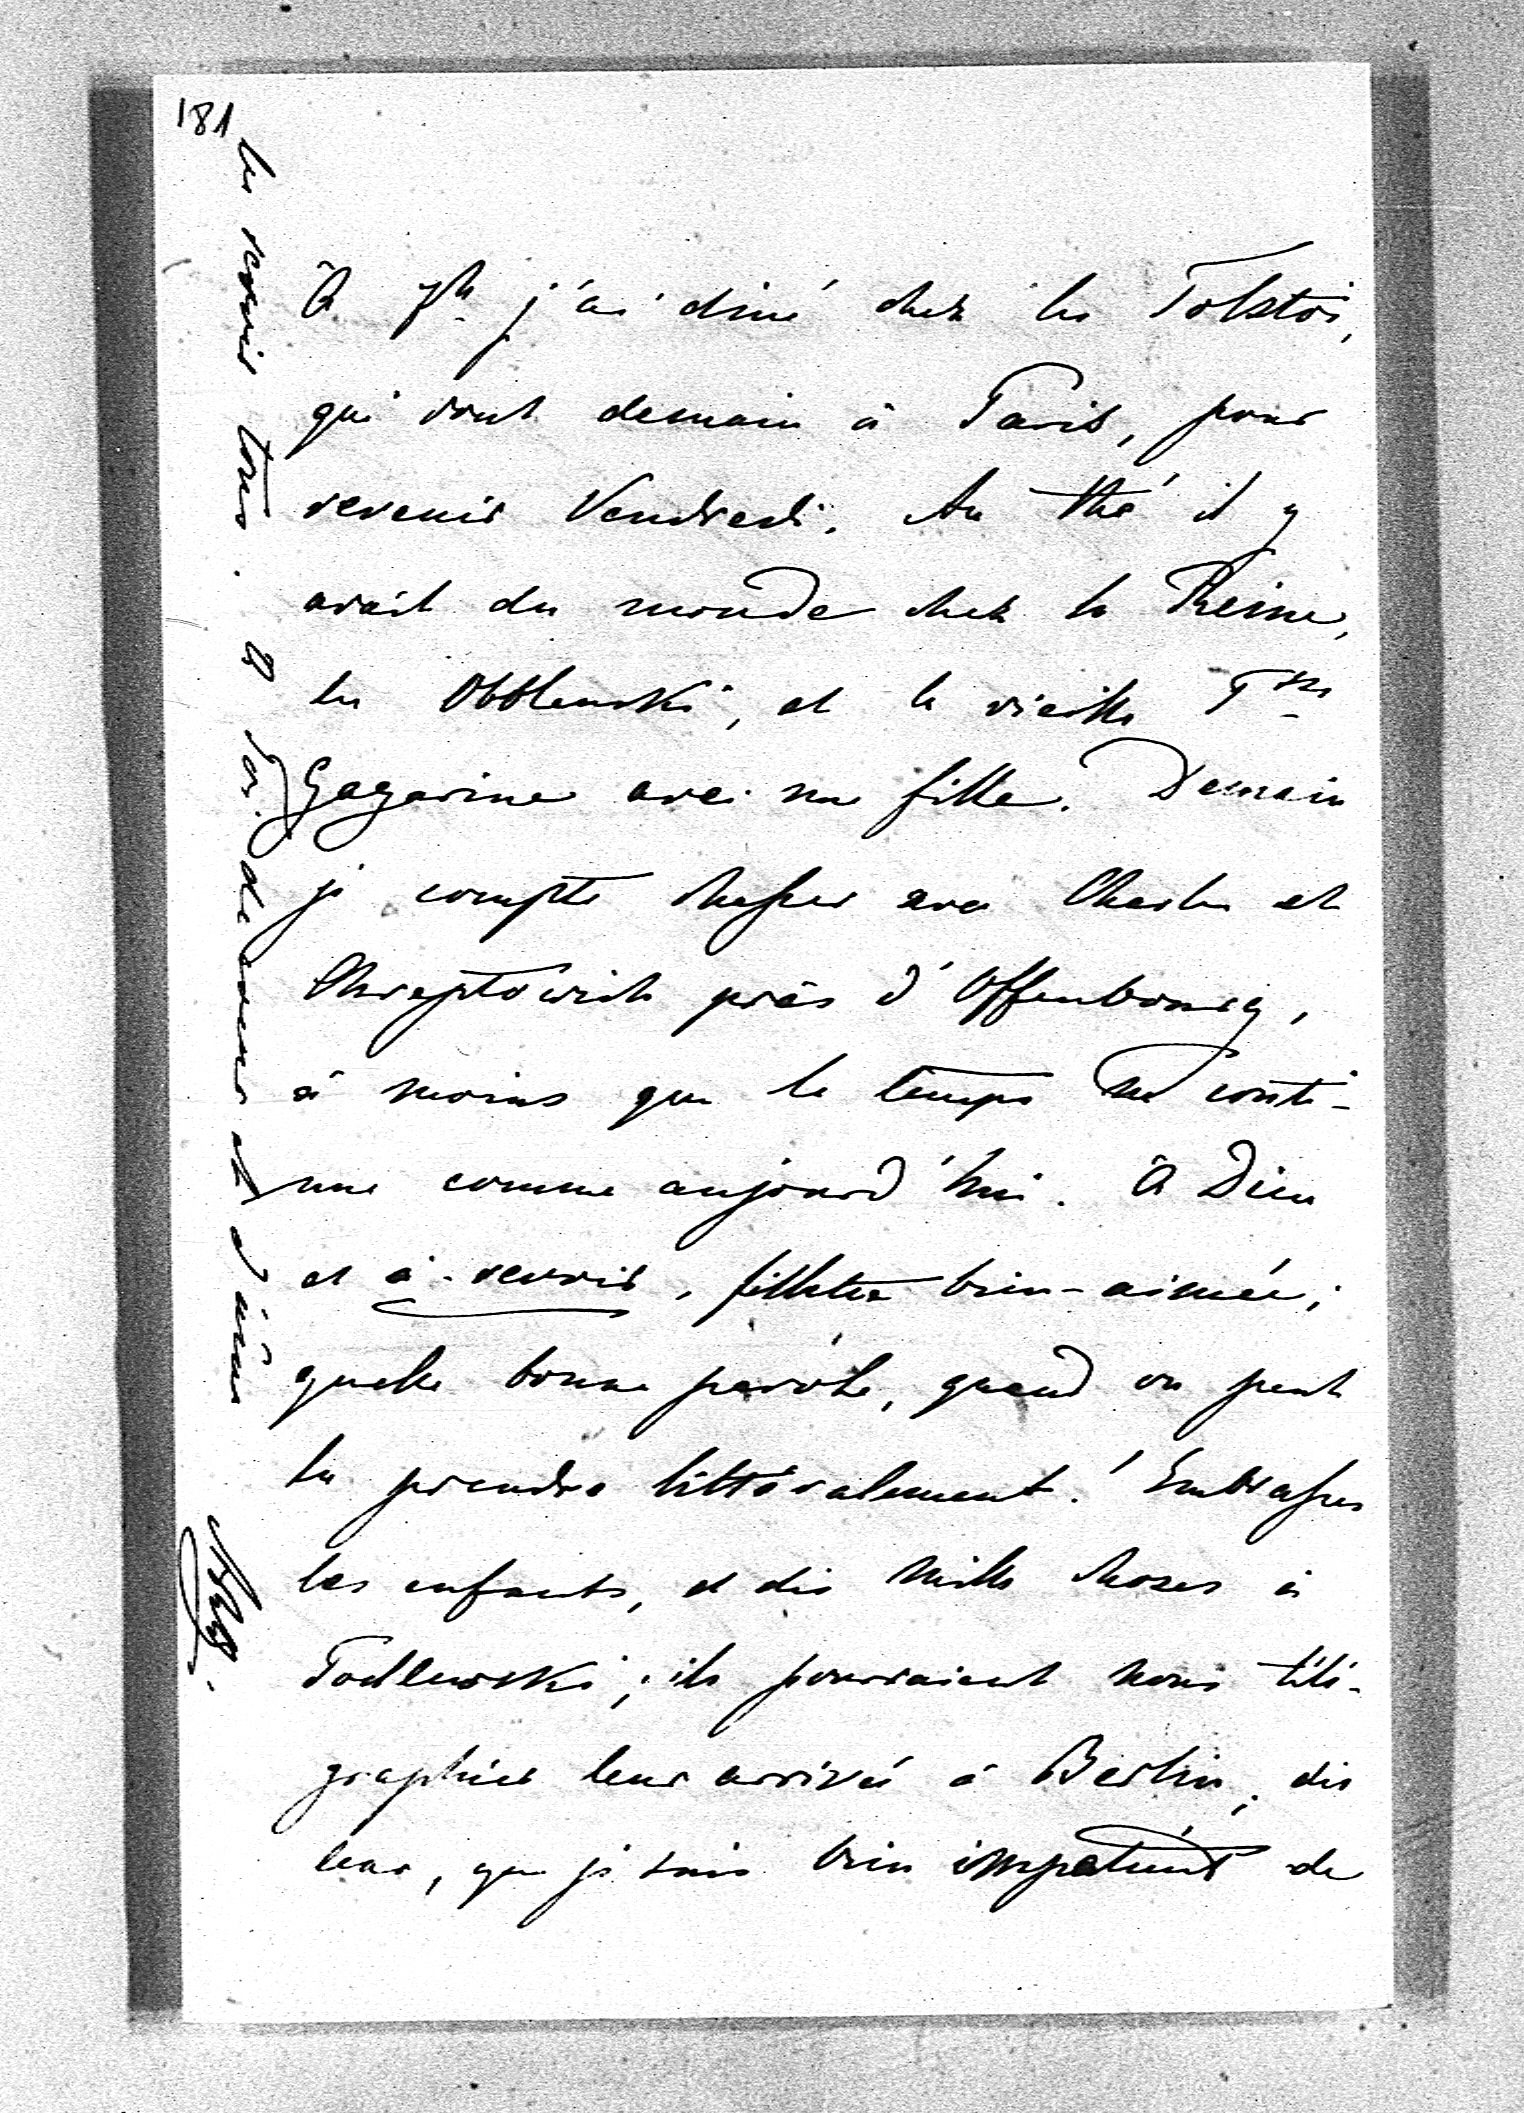 181
À 7h j'ai diné chez les Tolstoi,
qui vont demain à Paris, pour
revenir Vendredi. Au thé il y
avait du monde chez la Reine,
les Obolenski, et la vieille Pss
Gagarine avec sa fille. Demain
je compte chasser avec Charles et
Chreptowich près d'Offenbourg,
à moins que le temps ne conti-
nue comme aujourd'hui. À Dieu
et à-revoir, fillette bien-aimée;
quelle bonne parole, quand on peut
la prendre littéralement! Embrasses
les enfants, et dis mille choses à
Podlewski; ils pourraient nous télé-
graphier leur arrivée à Berlin; dis
leur, que je suis bien impatient de
les revoir tous. À toi de coeur et d'âme